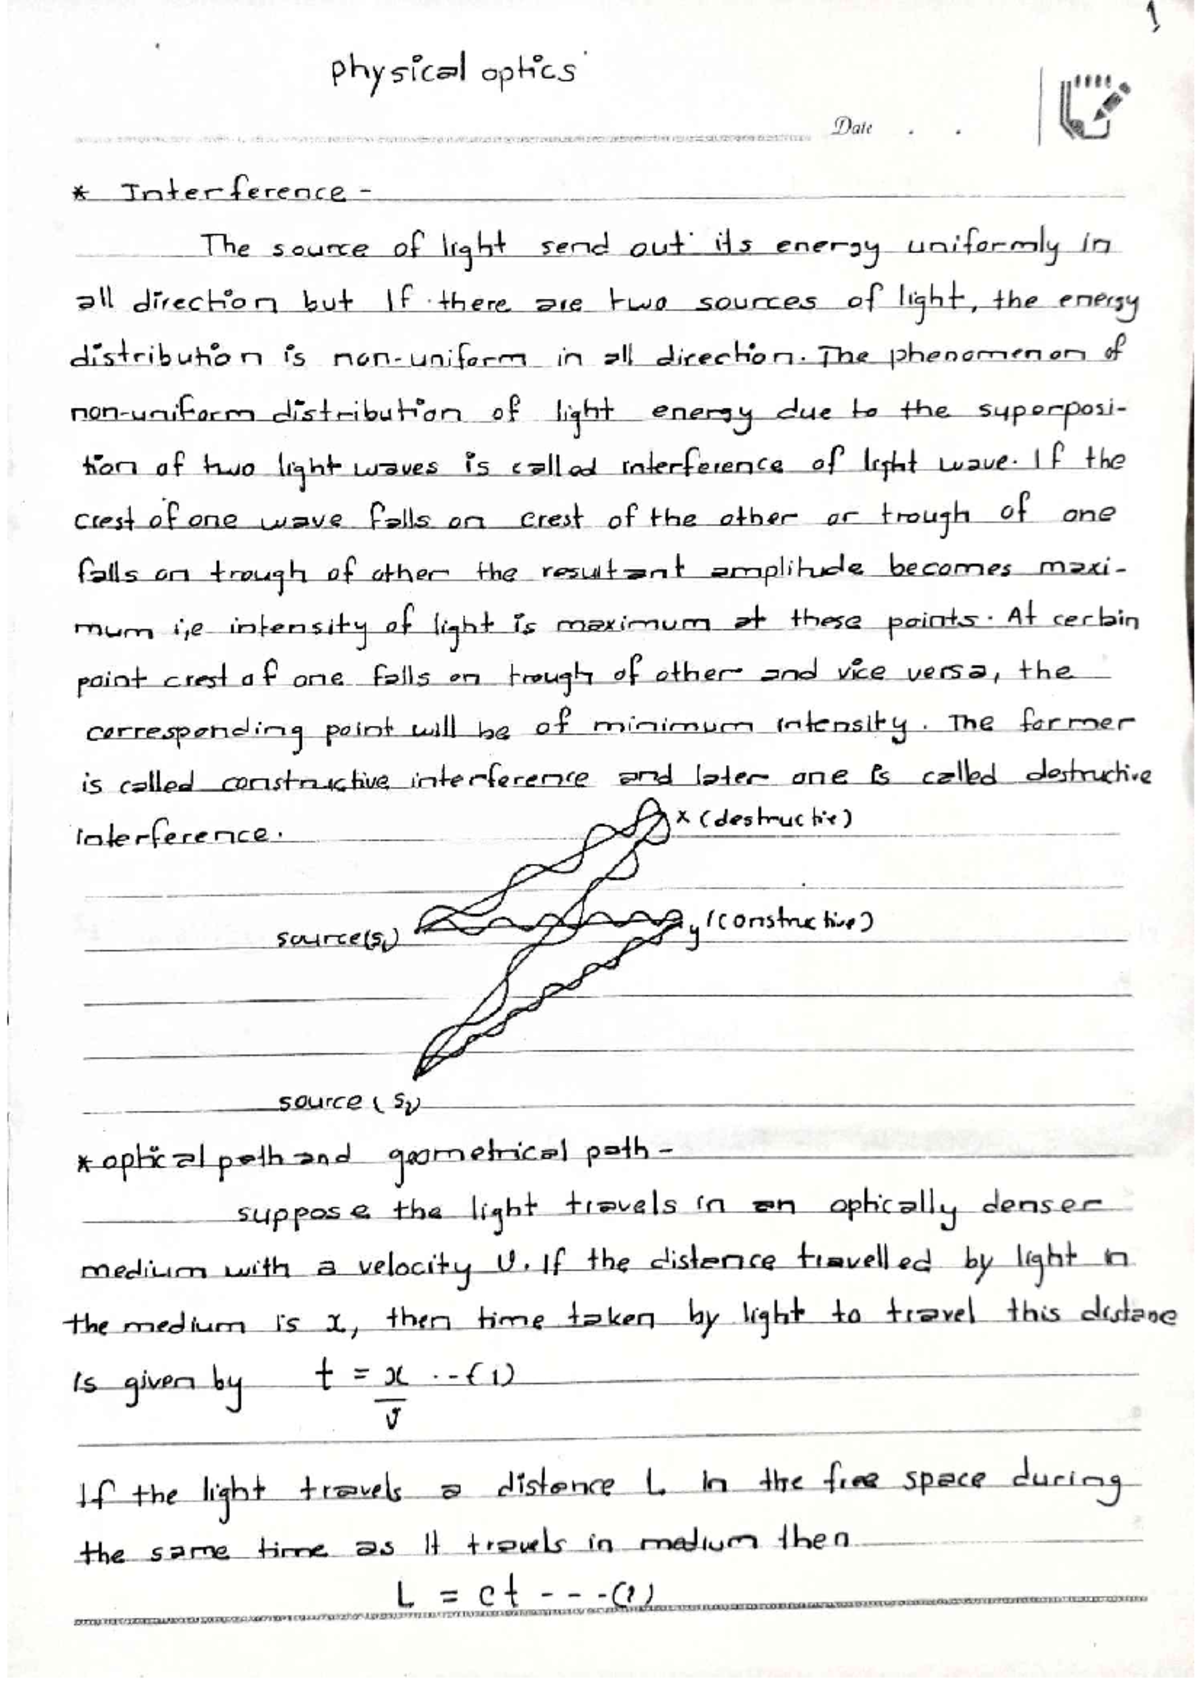 1
physical optics
Date . .
* Interference -
The source of light send out its energy uniformly in
all direction but If there are two sources of light, the energy
distribution is non-uniform in all direction. The phenomenon of
non-uniform distribution of light energy due to the superposi-
tion of two light waves is called interference of light wave. If the
crest of one wave falls on crest of the other or trough of one
falls on trough of other the resultant amplitude becomes maxi-
mum i,e intensity of light is maximum at these points. At certain
point crest of one falls on trough of other and vice versa, the
corresponding point will be of minimum intensity. The former
is called constructive interference and later one is called destructive
interference.
x (destructive)
source(S₁)
y (constructive)
source (S₂)
* optical path and geometrical path -
suppose the light travels in an optically denser
medium with a velocity v. If the distance travelled by light in
the medium is x, then time taken by light to travel this distance
is given by t = x/v ..-(1)
If the light travels a distance L in the free space during
the same time as it travels in medium then
L = ct - - -(2)